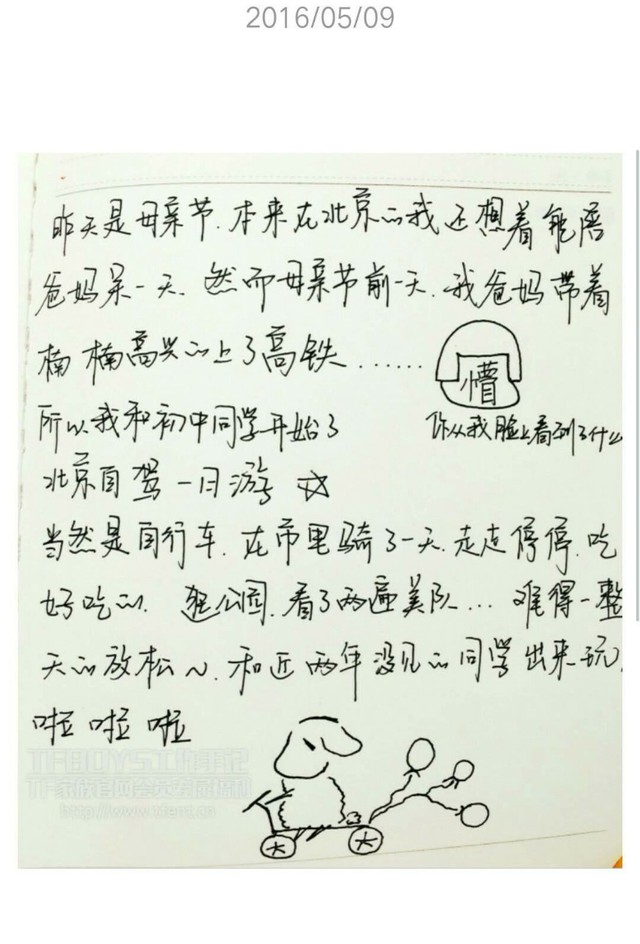 2016/05/09
昨天是母亲节.本来在北京的我还想着能陪
爸妈呆一天.然而母亲节前一天.我爸妈带着
楠楠高兴的上了高铁……
懵
所以我和初中同学开始了
你从我脸上看到了什么
北京自驾一日游 ☆
当然是自行车.在市里骑了一天.走走停停.吃
好吃的.逛公园.看了两遍美队...难得一整
天的放松~.和近两年没见的同学出来玩.
啦啦啦
TFBOYS工作笔记
TF家族官网会员专属福利
http://www.tfent.cn
大 大